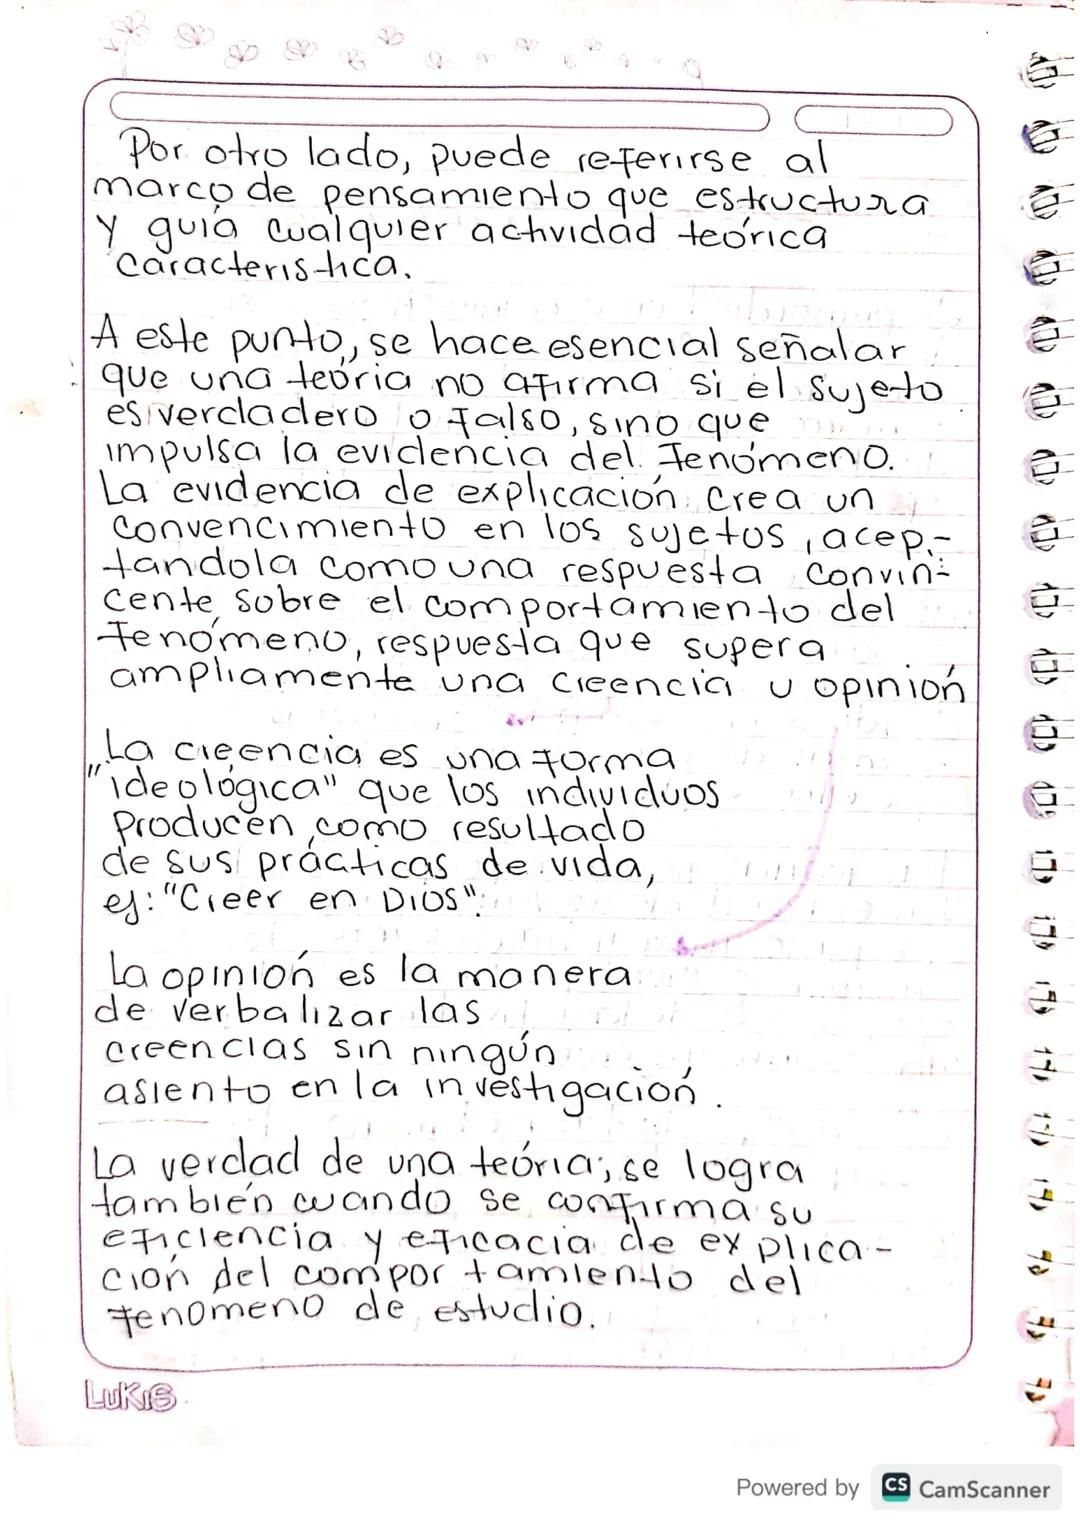 Por otro lado, puede referirse al
marco de pensamiento que estructura
y guía cualquier actividad teórica
característica.
A este punto, se hace esencial señalar
que una teoría no afirma si el sujeto
es verdadero o falso, sino que
impulsa la evidencia del fenómeno.
La evidencia de explicación crea un
convencimiento en los sujetos, acep-
tandola como una respuesta convin-
cente sobre el comportamiento del
fenómeno, respuesta que supera
ampliamente una creencia u opinión
La creencia es una forma
"ideológica" que los individuos
producen como resultado
de sus prácticas de vida,
ej: "Creer en Dios".
La opinión es la manera
de verbalizar las
creencias sin ningún
asiento en la investigación.
La verdad de una teoría, se logra
también cuando se confirma su
eficiencia y eficacia de explica-
ción del comportamiento del
fenomeno de estudio.
LUKIS
Powered by CS CamScanner